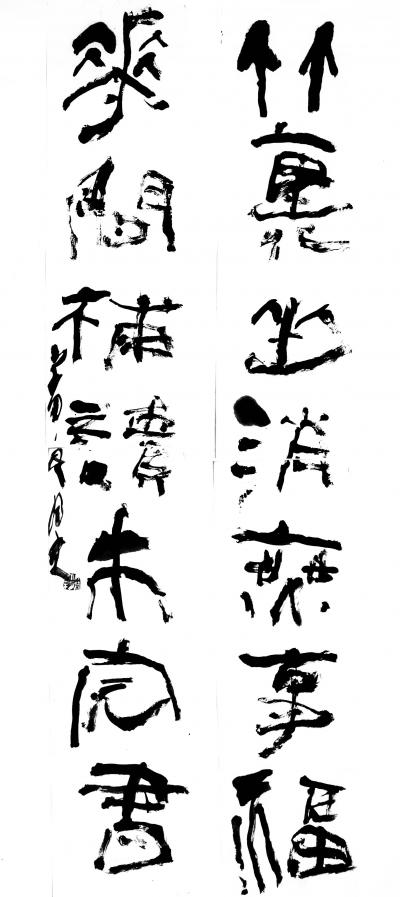 竹裏坐消無事福
華間補讀未完書